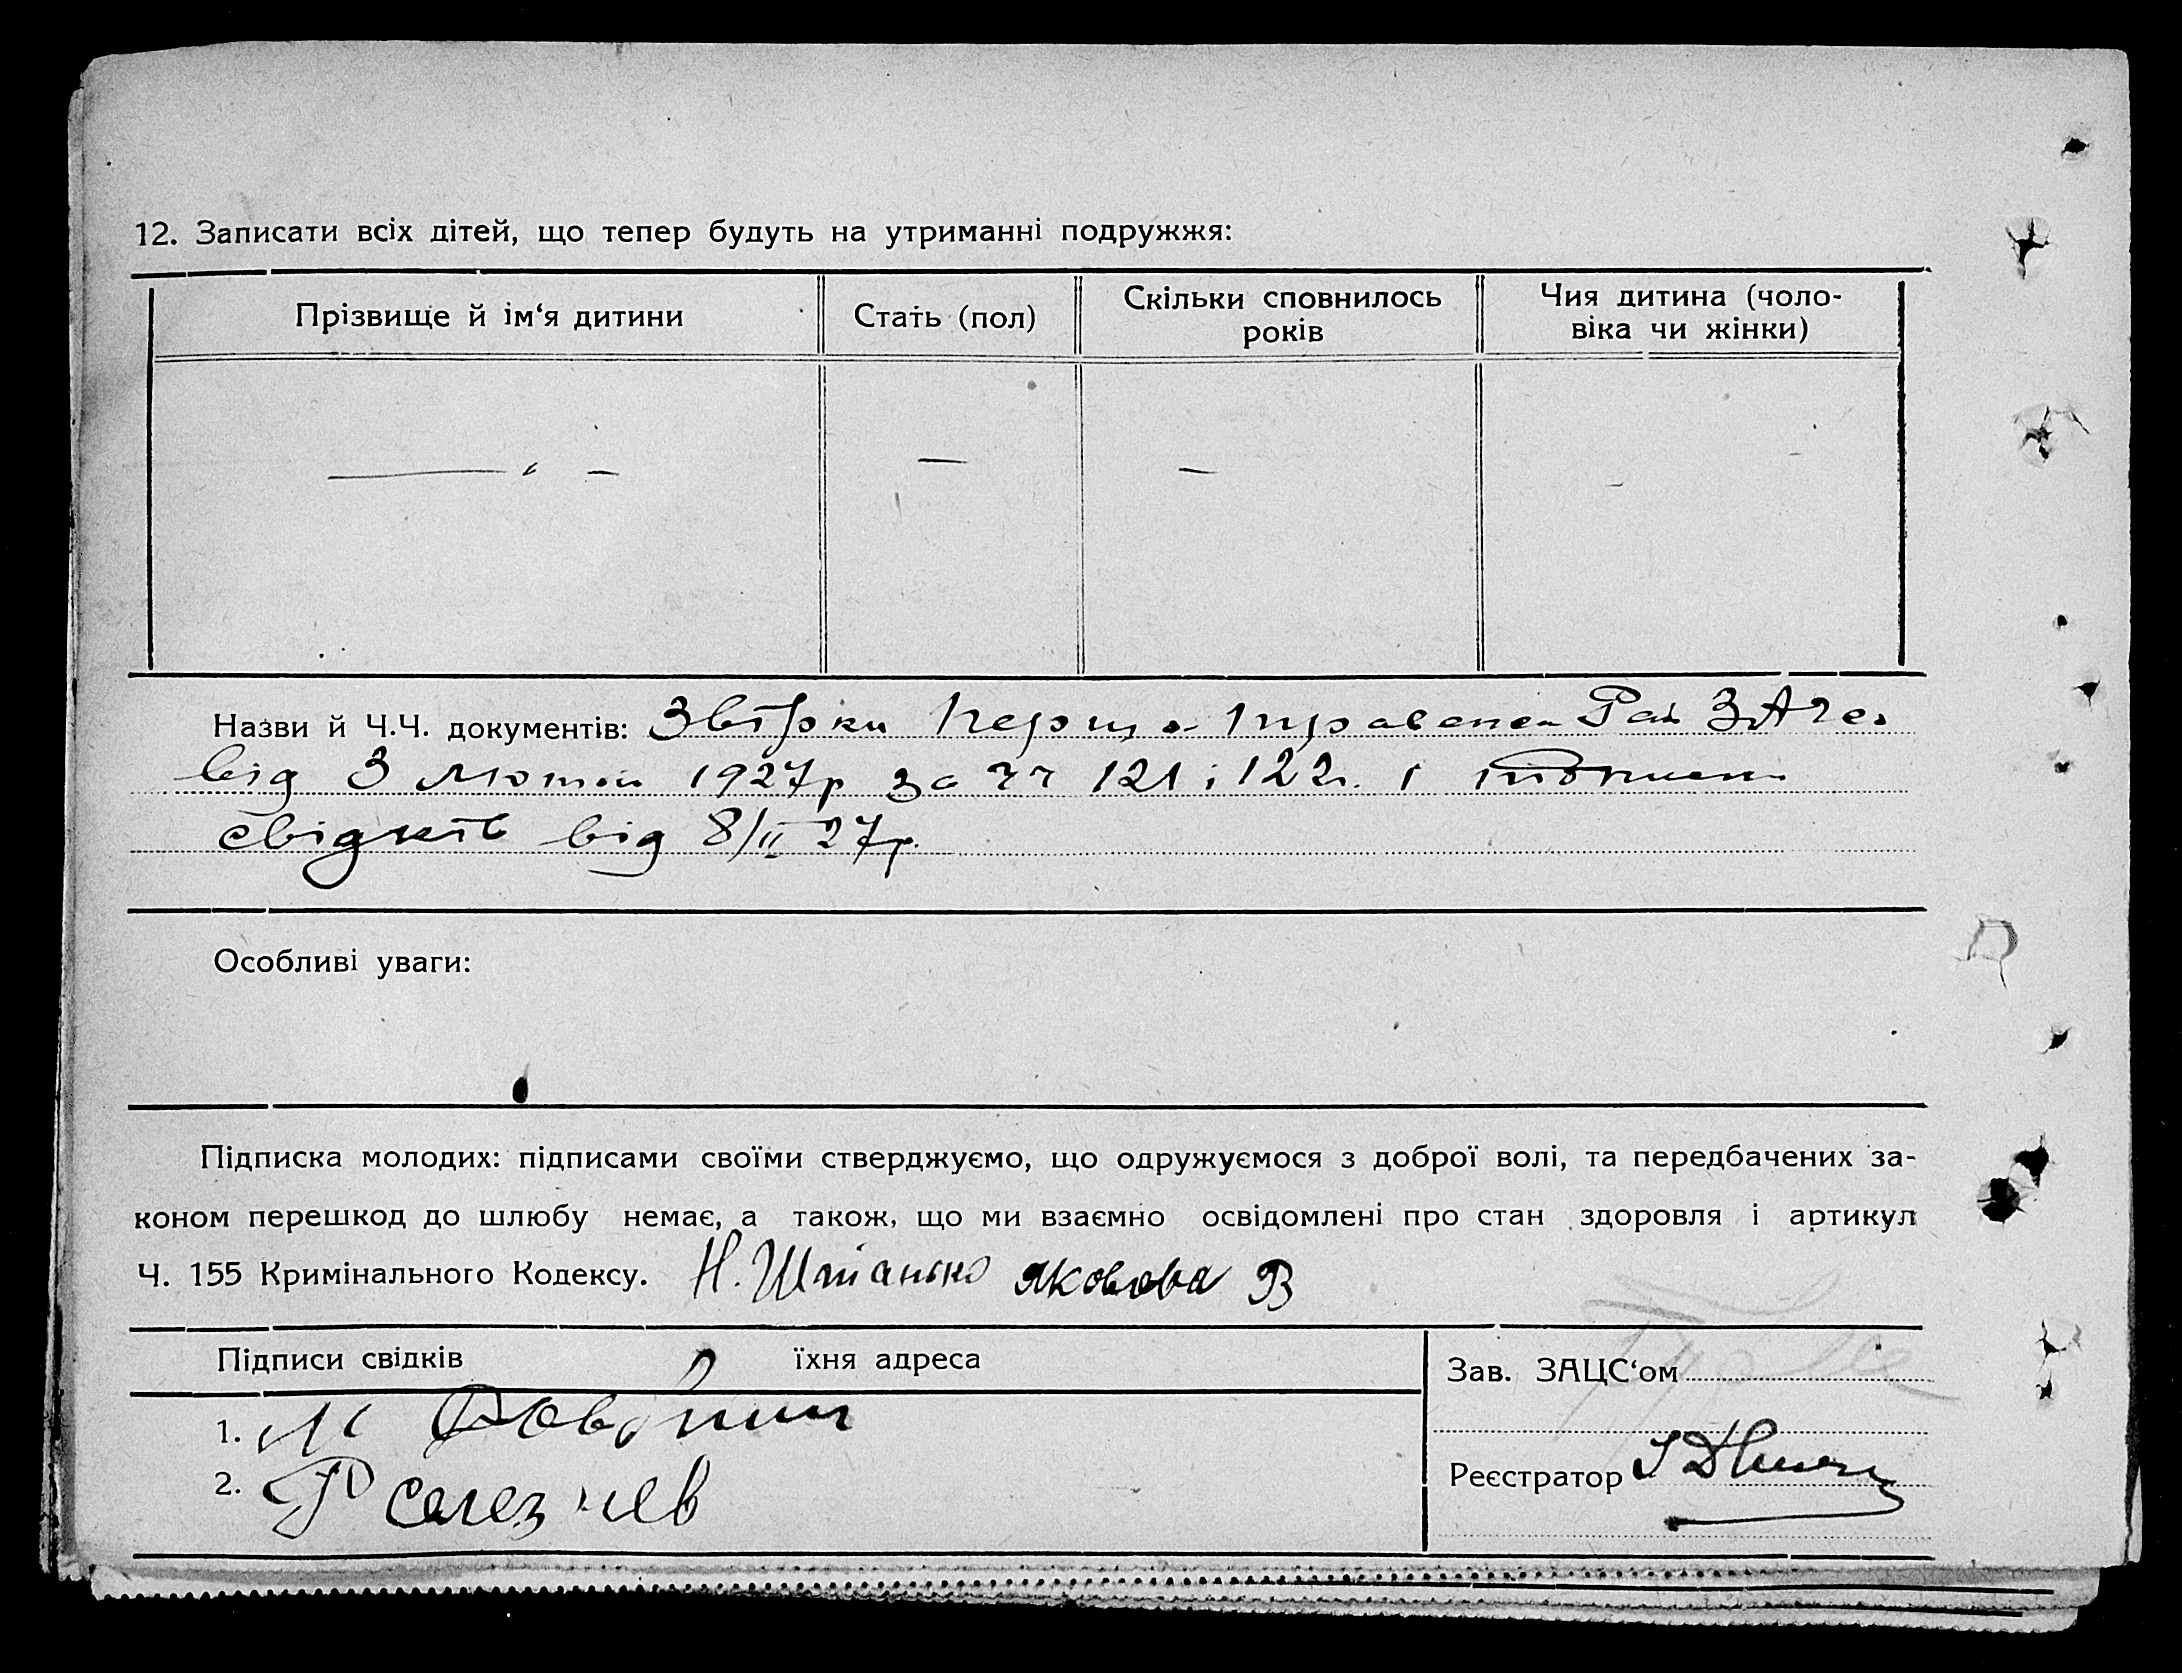 12. Записати всіх дітей, що тепер будуть на утриманні подружжя:
Прізвище й ім‘я дитини
Стать (пол)
Скільки сповнилось
років
Чия дитина (чоло-
віка чи жінки)
Назви й Ч.Ч. документів: Рай
від 3 1927р за чч 121 і 122 і
свідків від 8/II 27р.
Особливі уваги:
Підписка молодих: підписами своїми стверджуємо, що одружуємося з доброї волі, та передбачених за-
коном перешкод до шлюбу немає, а також, що ми взаємно освідомлені про стан здоровля і артикул
Ч. 155 Кримінального Кодексу. Н. Яковлева В
Підписи свідків їхня адреса
1. М
2. Селезнев
Зав. ЗАЦС‘ом
Реєстратор